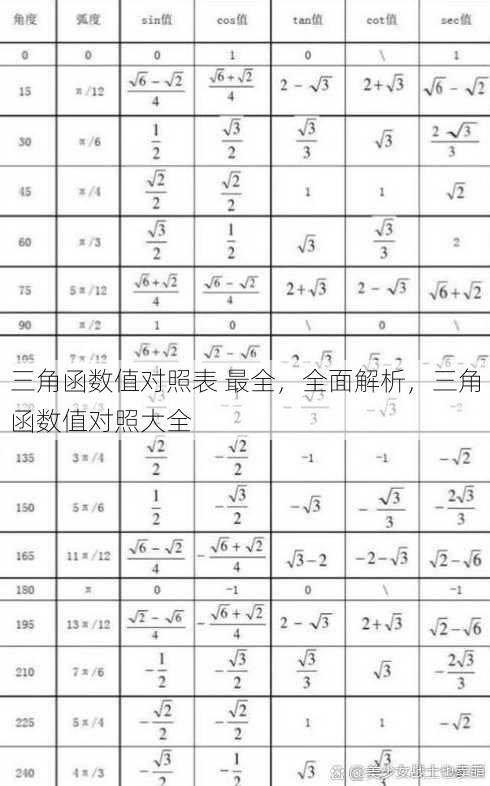 角度 弧度 sin值 cos值 tan值 cot值 sec值
0 0 0 1 0 \ 1
15 π/12 (√6-√2)/4 (√6+√2)/4 2-√3 2+√3 √6-√2
30 π/6 1/2 √3/2 √3/3 √3 2√3/3
45 π/4 √2/2 √2/2 1 1 √2
60 π/3 √3/2 1/2 √3 √3/3 2
75 5π/12 (√6+√2)/4 (√6-√2)/4 2+√3 2-√3 √6+√2
90 π/2 1 0 \ 0 \
105 7π/12 (√6+√2)/4 (√2-√6)/4 -2-√3 √3-2 -√6-√2
三角函数值对照表 最全，全面解析，三角
函数值对照大全
135 3π/4 √2/2 -√2/2 -1 -1 -√2
150 5π/6 1/2 -√3/2 -√3 -√3/3 -2√3/3
165 11π/12 (√6-√2)/4 -(√6+√2)/4 √3-2 -2-√3 √2-√6
180 π 0 -1 0 \ -1
195 13π/12 (√2-√6)/4 -(√6+√2)/4 2-√3 2+√3 √2-√6
210 7π/6 -1/2 -√3/2 √3/3 √3 -2√3/3
225 5π/4 -√2/2 -√2/2 1 1 -√2
240 4π/3 -√3/2 -1/2 √3 √3/3
@美少女战士也卖萌